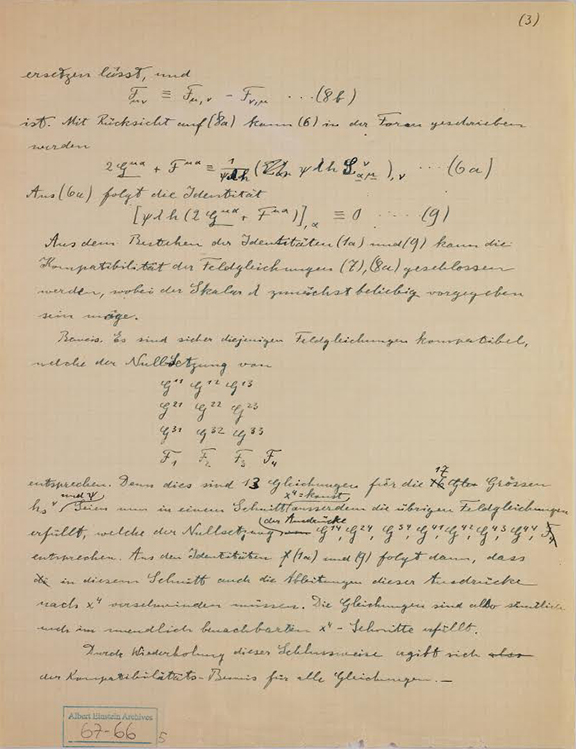 (3)
ersetzen lässt, und
F_μν ≡ F_μ,ν - F_ν,μ ...(8b)
ist. Mit Rücksicht auf (8a) kann (6) in der Form geschrieben
werden
2 G^μα + F^μα ≡ 1/ψλh ( ψλh ),ν ...(6a)
Aus (6a) folgt die Identität
[ψλh (2 G^μα + F^μα)],α ≡ 0 ...(9)
Aus dem Bestehen der Identitäten (1a) und (9) kann die
Kompatibilität der Feldgleichungen (7), (8a) geschlossen
werden, wobei der Skalar λ zunächst beliebig vorgegeben
sein möge.
Beweis. Es sind sicher diejenigen Feldgleichungen kompatibel,
welche der Nullsetzung von
G^11 G^12 G^13
G^21 G^22 G^23
G^31 G^32 G^33
F_1 F_2 F_3 F_4
entsprechen. Denn dies sind 13 Gleichungen für die 17 Grössen
h_s^ν und ψ. Seien nun in einem Schnitt x^4 = konst ausserdem die übrigen Feldgleichungen
erfüllt, welche der Nullsetzung der Ausdrücke G^14, G^24, G^34, G^41, G^42, G^43, G^44
entsprechen. Aus den Identitäten (1a) und (9) folgt dann, dass
in diesem Schnitt auch die Ableitungen dieser Ausdrücke
nach x^4 verschwinden müssen. Die Gleichungen sind also sämtlich
auch im unendlich benachbarten x^4-Schnitte erfüllt.
Durch Wiederholung dieser Schlussweise ergibt sich
der Kompatibilitäts-Beweis für alle Gleichungen. —
Albert Einstein Archives
67-66
5